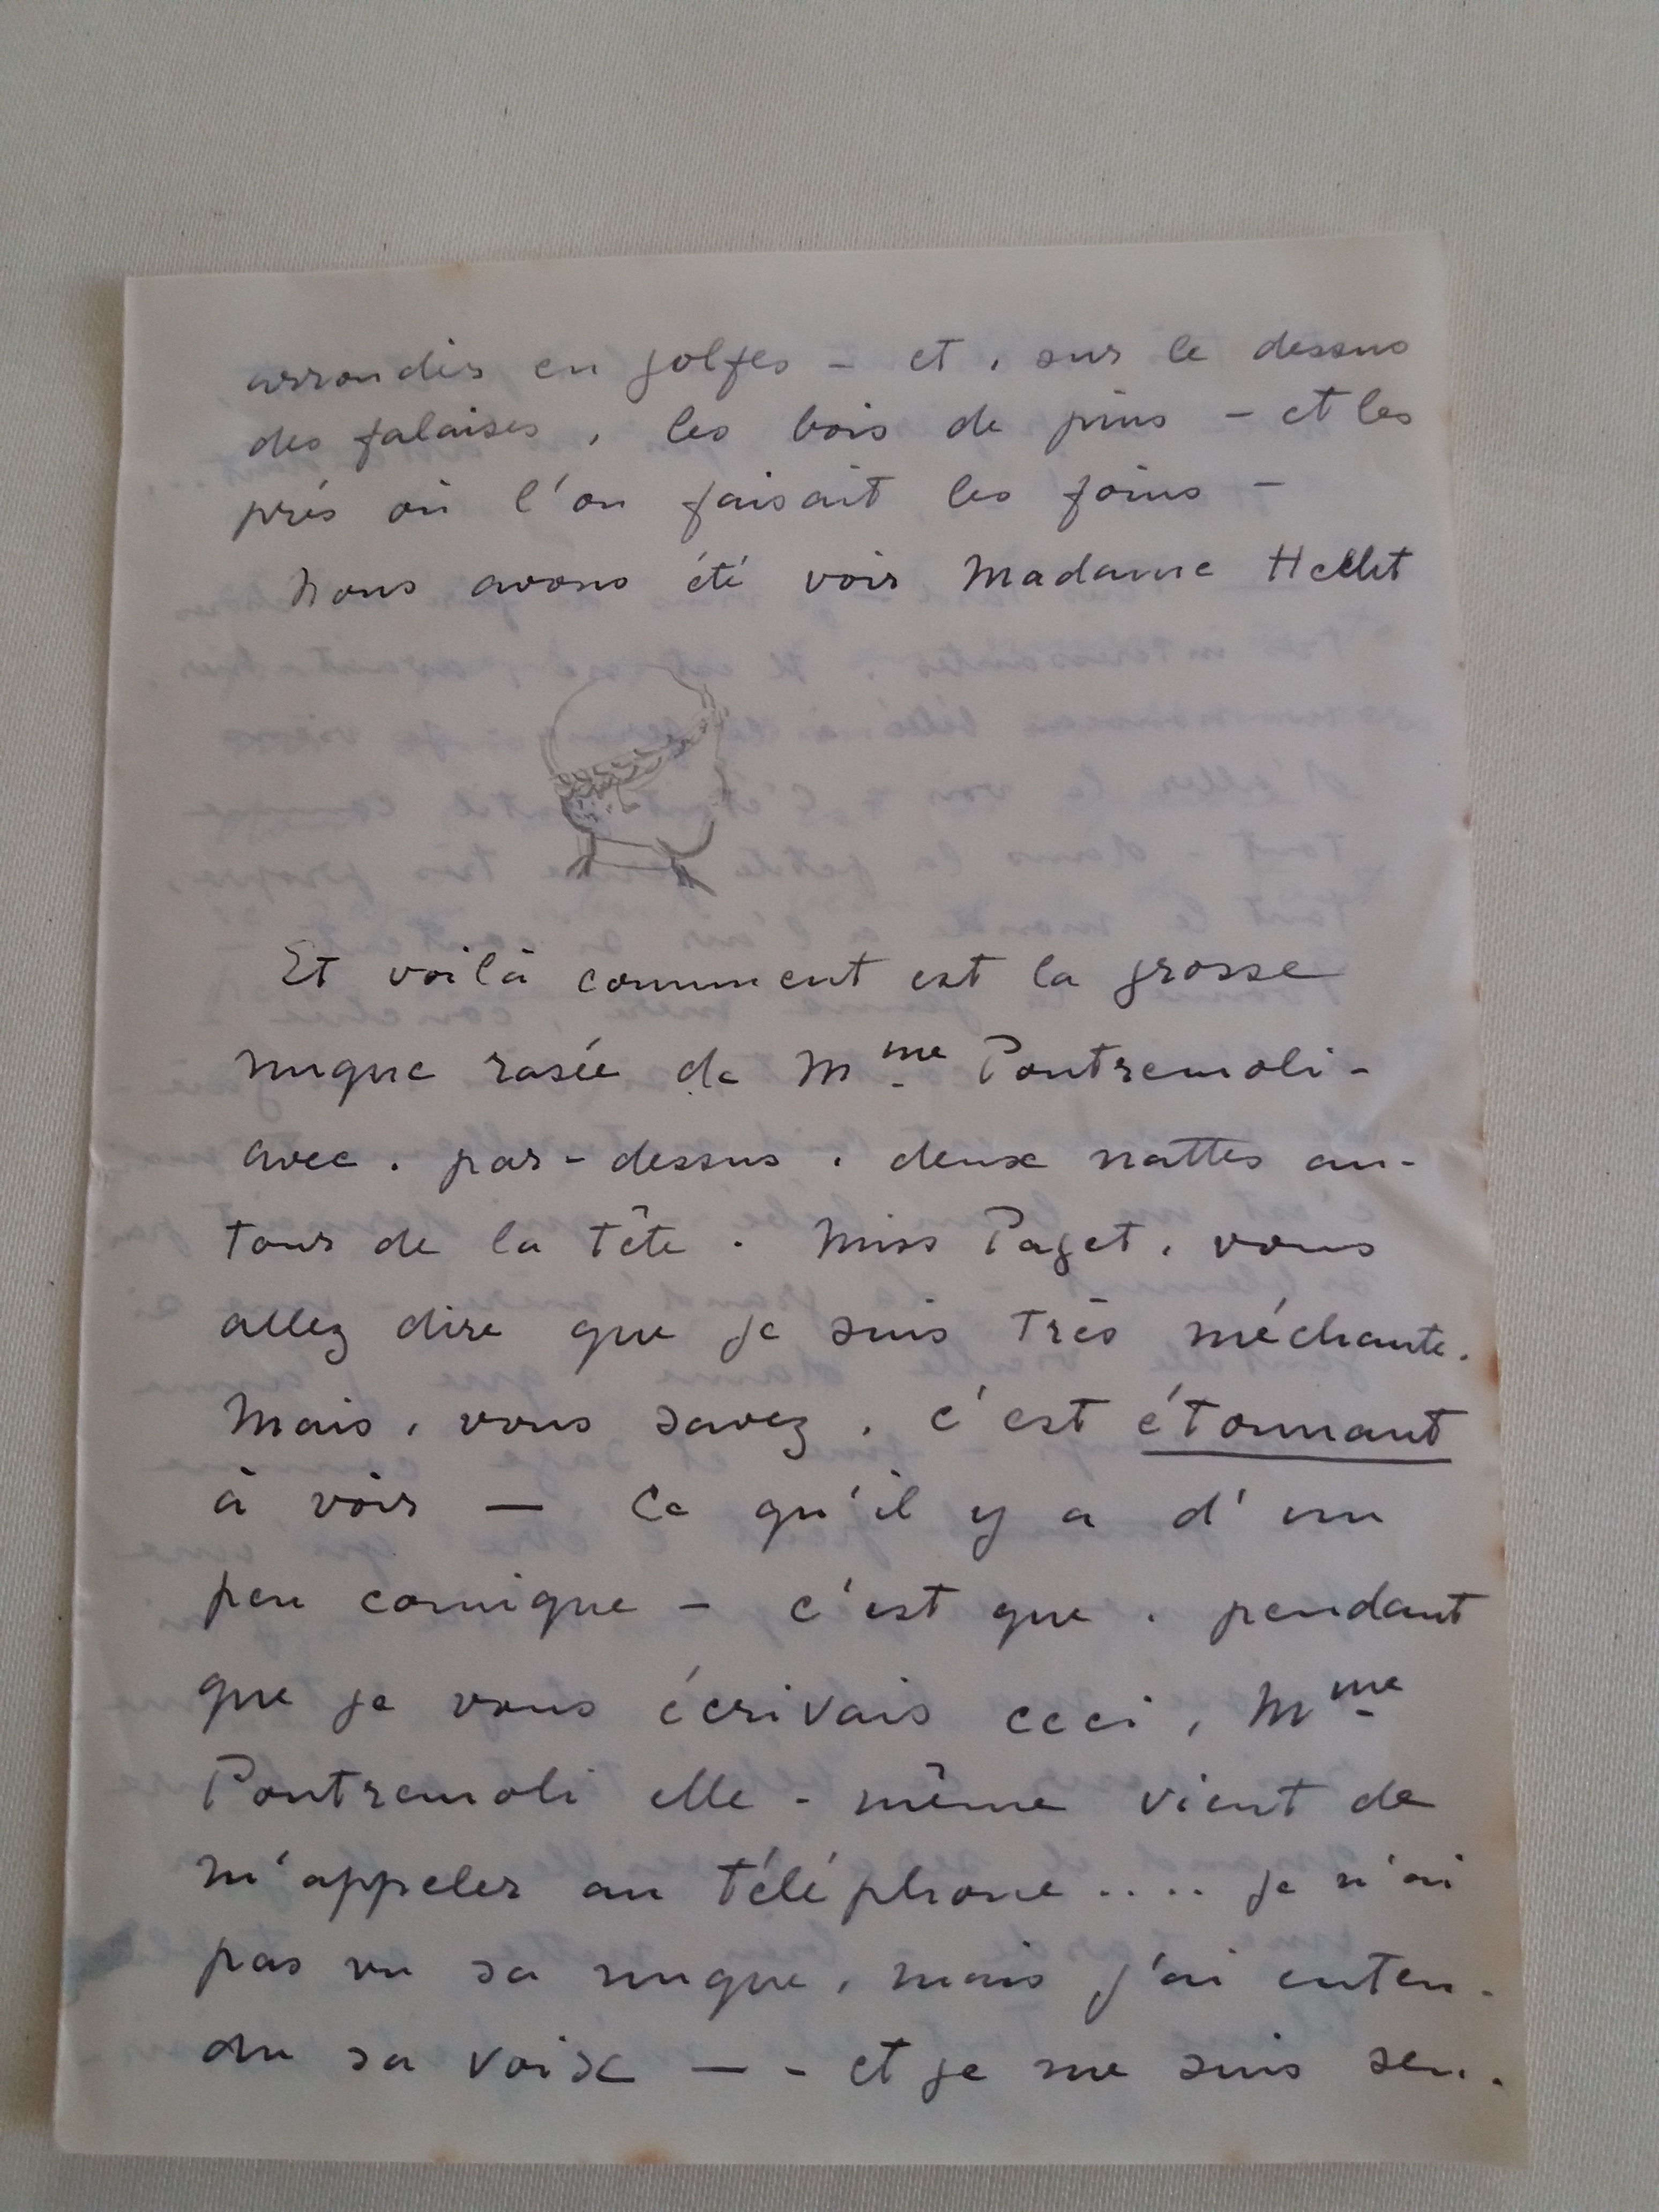 arrondis en golfes - et, sur le dessus
des falaises, les bois de pins - et les
prés où l'on faisait les foins -
Nous avons été voir Madame
Et voilà comment est la grosse
nuque rasée de Mme Pontremoli -
avec, par-dessus, deux nattes au-
tour de la tête. Miss Paget, vous
allez dire que je suis très méchante.
Mais, vous savez, c'est étonnant
à voir — Ce qu'il y a d'un
peu comique - c'est que, pendant
que je vous écrivais ceci, Mme
Pontremoli elle-même vient de
m'appeler au téléphone.... je n'ai
pas vu sa nuque, mais j'ai enten-
du sa voix — - et je me suis sen-